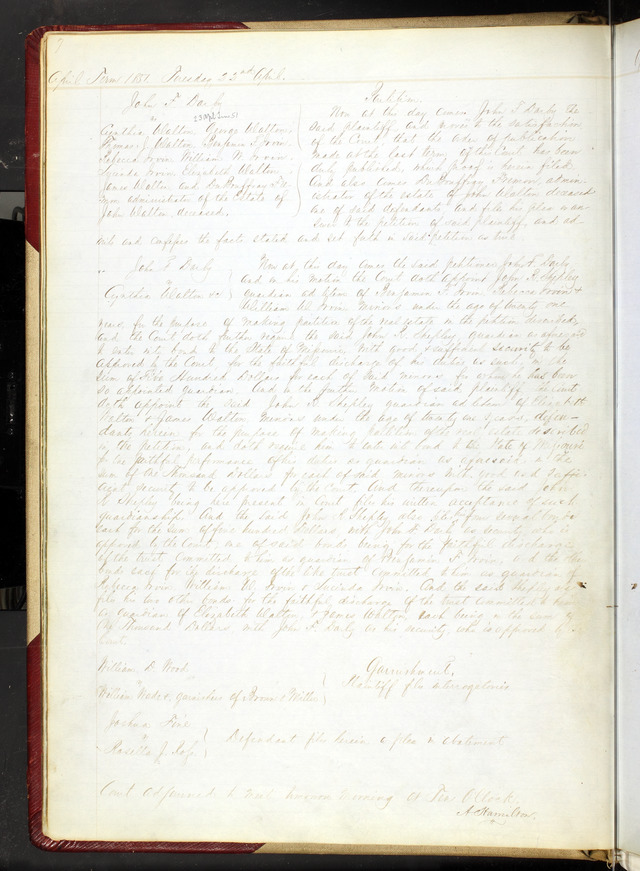 7
April Term 1851 Tuesday 22nd April.
John F. Darby
vs
Cynthia Walton George Walton
Thomas J. Walton Benjamin F. Irwin
Rebecca Irwin William W. Irwin
Lucinda Irwin Elizabeth Walton
James Walton and
administrator of the Estate of
John Walton, deceased.
Petition.
Now at this day comes John F. Darby the
said plaintiff and proves to the satisfaction
of the Court that the order of publication
made at the last term of this Court has been
duly published, which proof is herein filed
And also comes admin-
istrator of the estate of John Walton deceased
one of said defendants and files his plea or answer
to the petition of said plaintiff, and ad-
mits and confesses the facts stated and set forth in said petition as true.
John F. Darby
vs
Cynthia Walton &c
Now at this day comes the said petitioner John F. Darby
and on his motion the Court doth appoint John R. Shepley
guardian ad litem of Benjamin F. Irwin Rebecca Irwin &
William W. Irwin Minors under the age of twenty one
years for the purpose of making partition of the real estate in the petition described
and the Court doth further require the said John R. Shepley, guardian as aforesaid
to enter into bond to the State of Missouri with good & sufficient security to be
approved by the Court, for the faithful discharge of his duties as such in the
sum of Five Hundred Dollars for each of said minors for whom he has been
so appointed guardian. And on the further motion of said plaintiff the Court
doth appoint the said John R. Shepley guardian ad litem of Elizabeth
Walton & James Walton Minors under the age of twenty one years, defen-
dants herein for the purpose of making partition of the real estate described
in the petition, and doth require him to enter into bond to the State of Missouri
for the faithful performance of his duties as guardian as aforesaid in the
sum of One Thousand dollars for each of said minors with good and suffi-
cient security to be approved by the Court And thereupon the said John
R. Shepley being here present in Court files his written acceptance of such
guardianship And the said John R. Shepley also
each for the sum of five hundred Dollars with John F. Darby as security who is
approved by the Court, one of said bonds being for the faithful discharge
of the trust committed to him as guardian of Benjamin F. Irwin, and the
bonds each for his discharge of the like trust committed to him as guardian of
Rebecca Irwin William W. Irwin & Lucinda Irwin. And the said Shepley also
files his two other bonds for the faithful discharge of the trust committed to him
as Guardian of Elizabeth Walton & James Walton each being in the sum of
One Thousand Dollars with John F. Darby as his security, who is approved by the
Court.
William D. Wood
vs
William Wade &c, garnishees of
Garnishment.
Plaintiff files interrogatories
Joshua
vs
Rosetta J.
Defendant files herein a plea in abatement
Court adjourned to meet tomorrow morning at Ten O'Clock.
A. Hamilton.